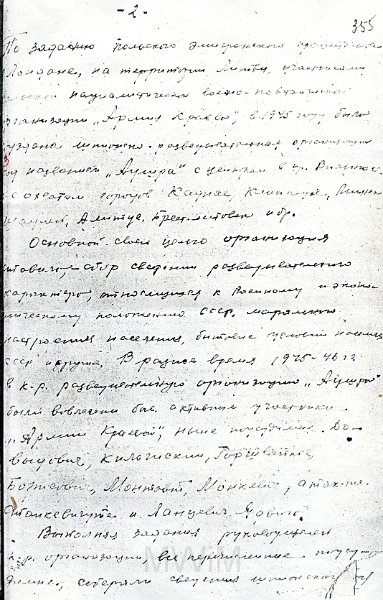 - 2 -
355
По заданию польского эмигранского правительства
Лондоне, на территории Литвы, участниками
польской националистической военно-повстанческой
организации „Армия Краева", в 1945 году была
создана шпионско-разведывательная организация
под названием „Аушра" с центром в гр. Вильнюс
с охватом городов Каунас,
Шауляй, Алитус, и др.
Основной своей целью организация
ставила сбор сведений разведывательного
характера, относящихся к военному и эконо-
мическому положению СССР, морального
настроения населения, бытовые условия населения
СССР и другие. В разное время 1945-46 гг.
в к.р. разведывательную организацию „Аушра"
были вовлечены быв. активные участники
„Армии Краевой", ныне подсудимые До-
выдович,
Монтовит, Монкевич, а также
Станкевичуте и Ланцевич
Выполняя задания руководителей
к.р. организации все перечисленные подсу-
димые, собирали сведения шпионского